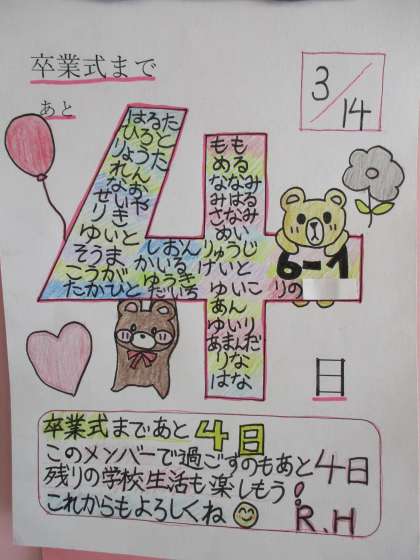 卒業式まで
あと
3/14
はるた
ひろと
りょうた
れん
なお
せいや
りき
ゆいと
そうま
こうが
たかひと
しおん
かいる
ゆうき
だいち
もも
める
ななみ
なはる
みさなみ
めい
りゅうじ
けいと
6-1
りの
ゆいこ
あん
ゆいり
あまんだ
りな
はな
日
卒業式まであと4日
このメンバーで過ごすのもあと4日
残りの学校生活も楽しもう!
これからもよろしくね
R.H